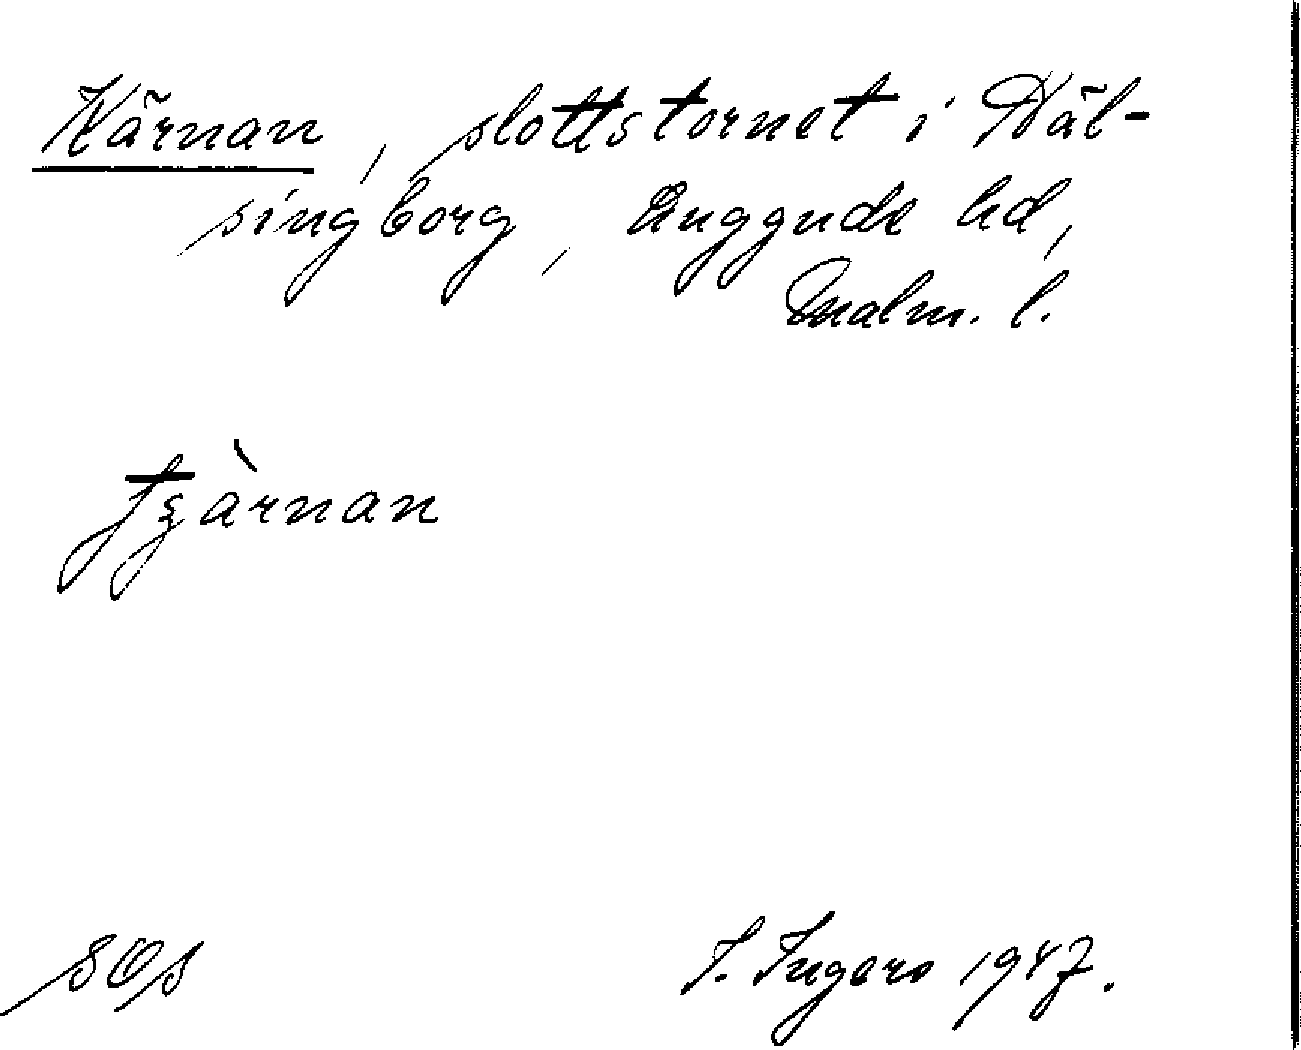 Kärnan, slottstornet i Häl-
singborg, Luggude hd,
Malm. l.
tʒàrnan
SOs
I. Ingers 1947.